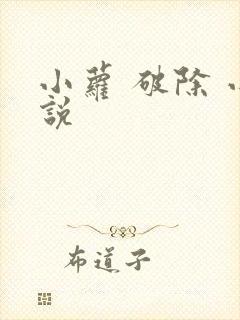 小蘿 破除
說
布道子